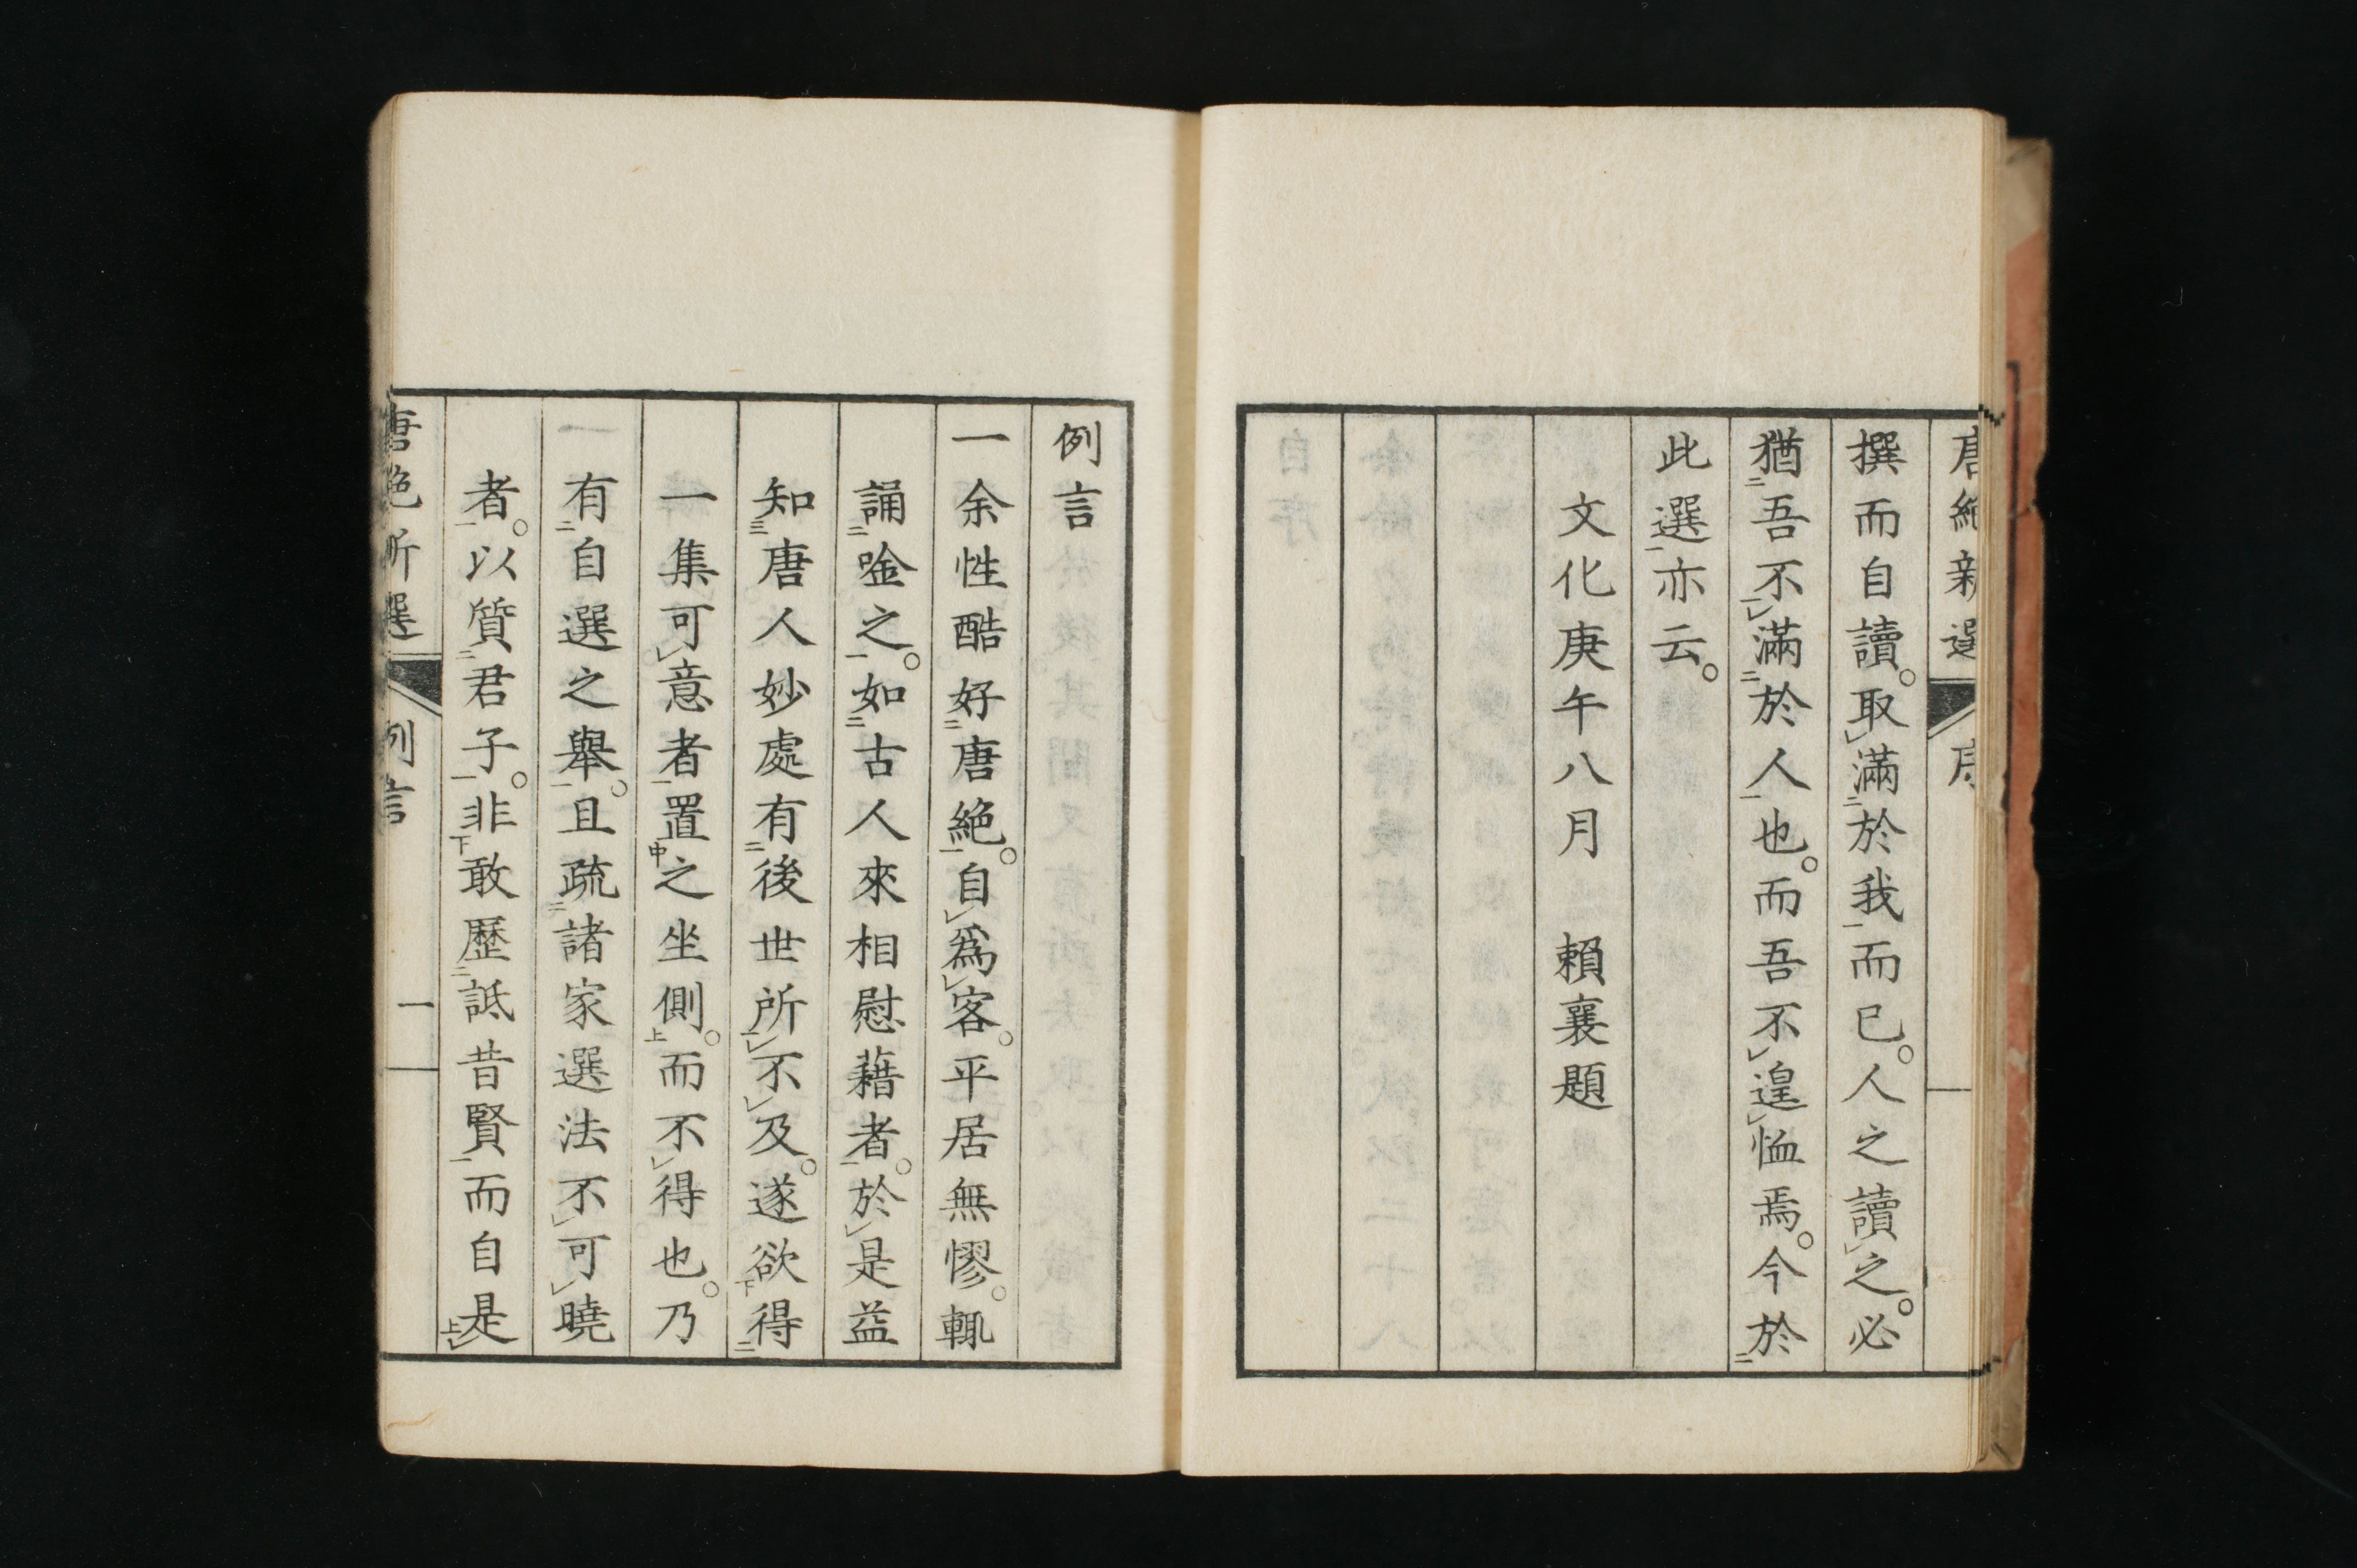 唐絶新選 序
撰而自讀。取滿於我而已。人之讀之。必
猶吾不滿於人也。而吾不遑恤焉。今於
此選亦云。
文化庚午八月 賴襄題
例言
一余性酷好唐絶。自爲客。平居無憀。輒
誦唫之。如古人來相慰藉者。於是益
知唐人妙處有後世所不及。遂欲得
一集可意者置之坐側。而不得也。乃
有自選之舉。且疏諸家選法不可曉
者。以質君子。非敢歷詆昔賢而自是
唐絶新選 例言 一